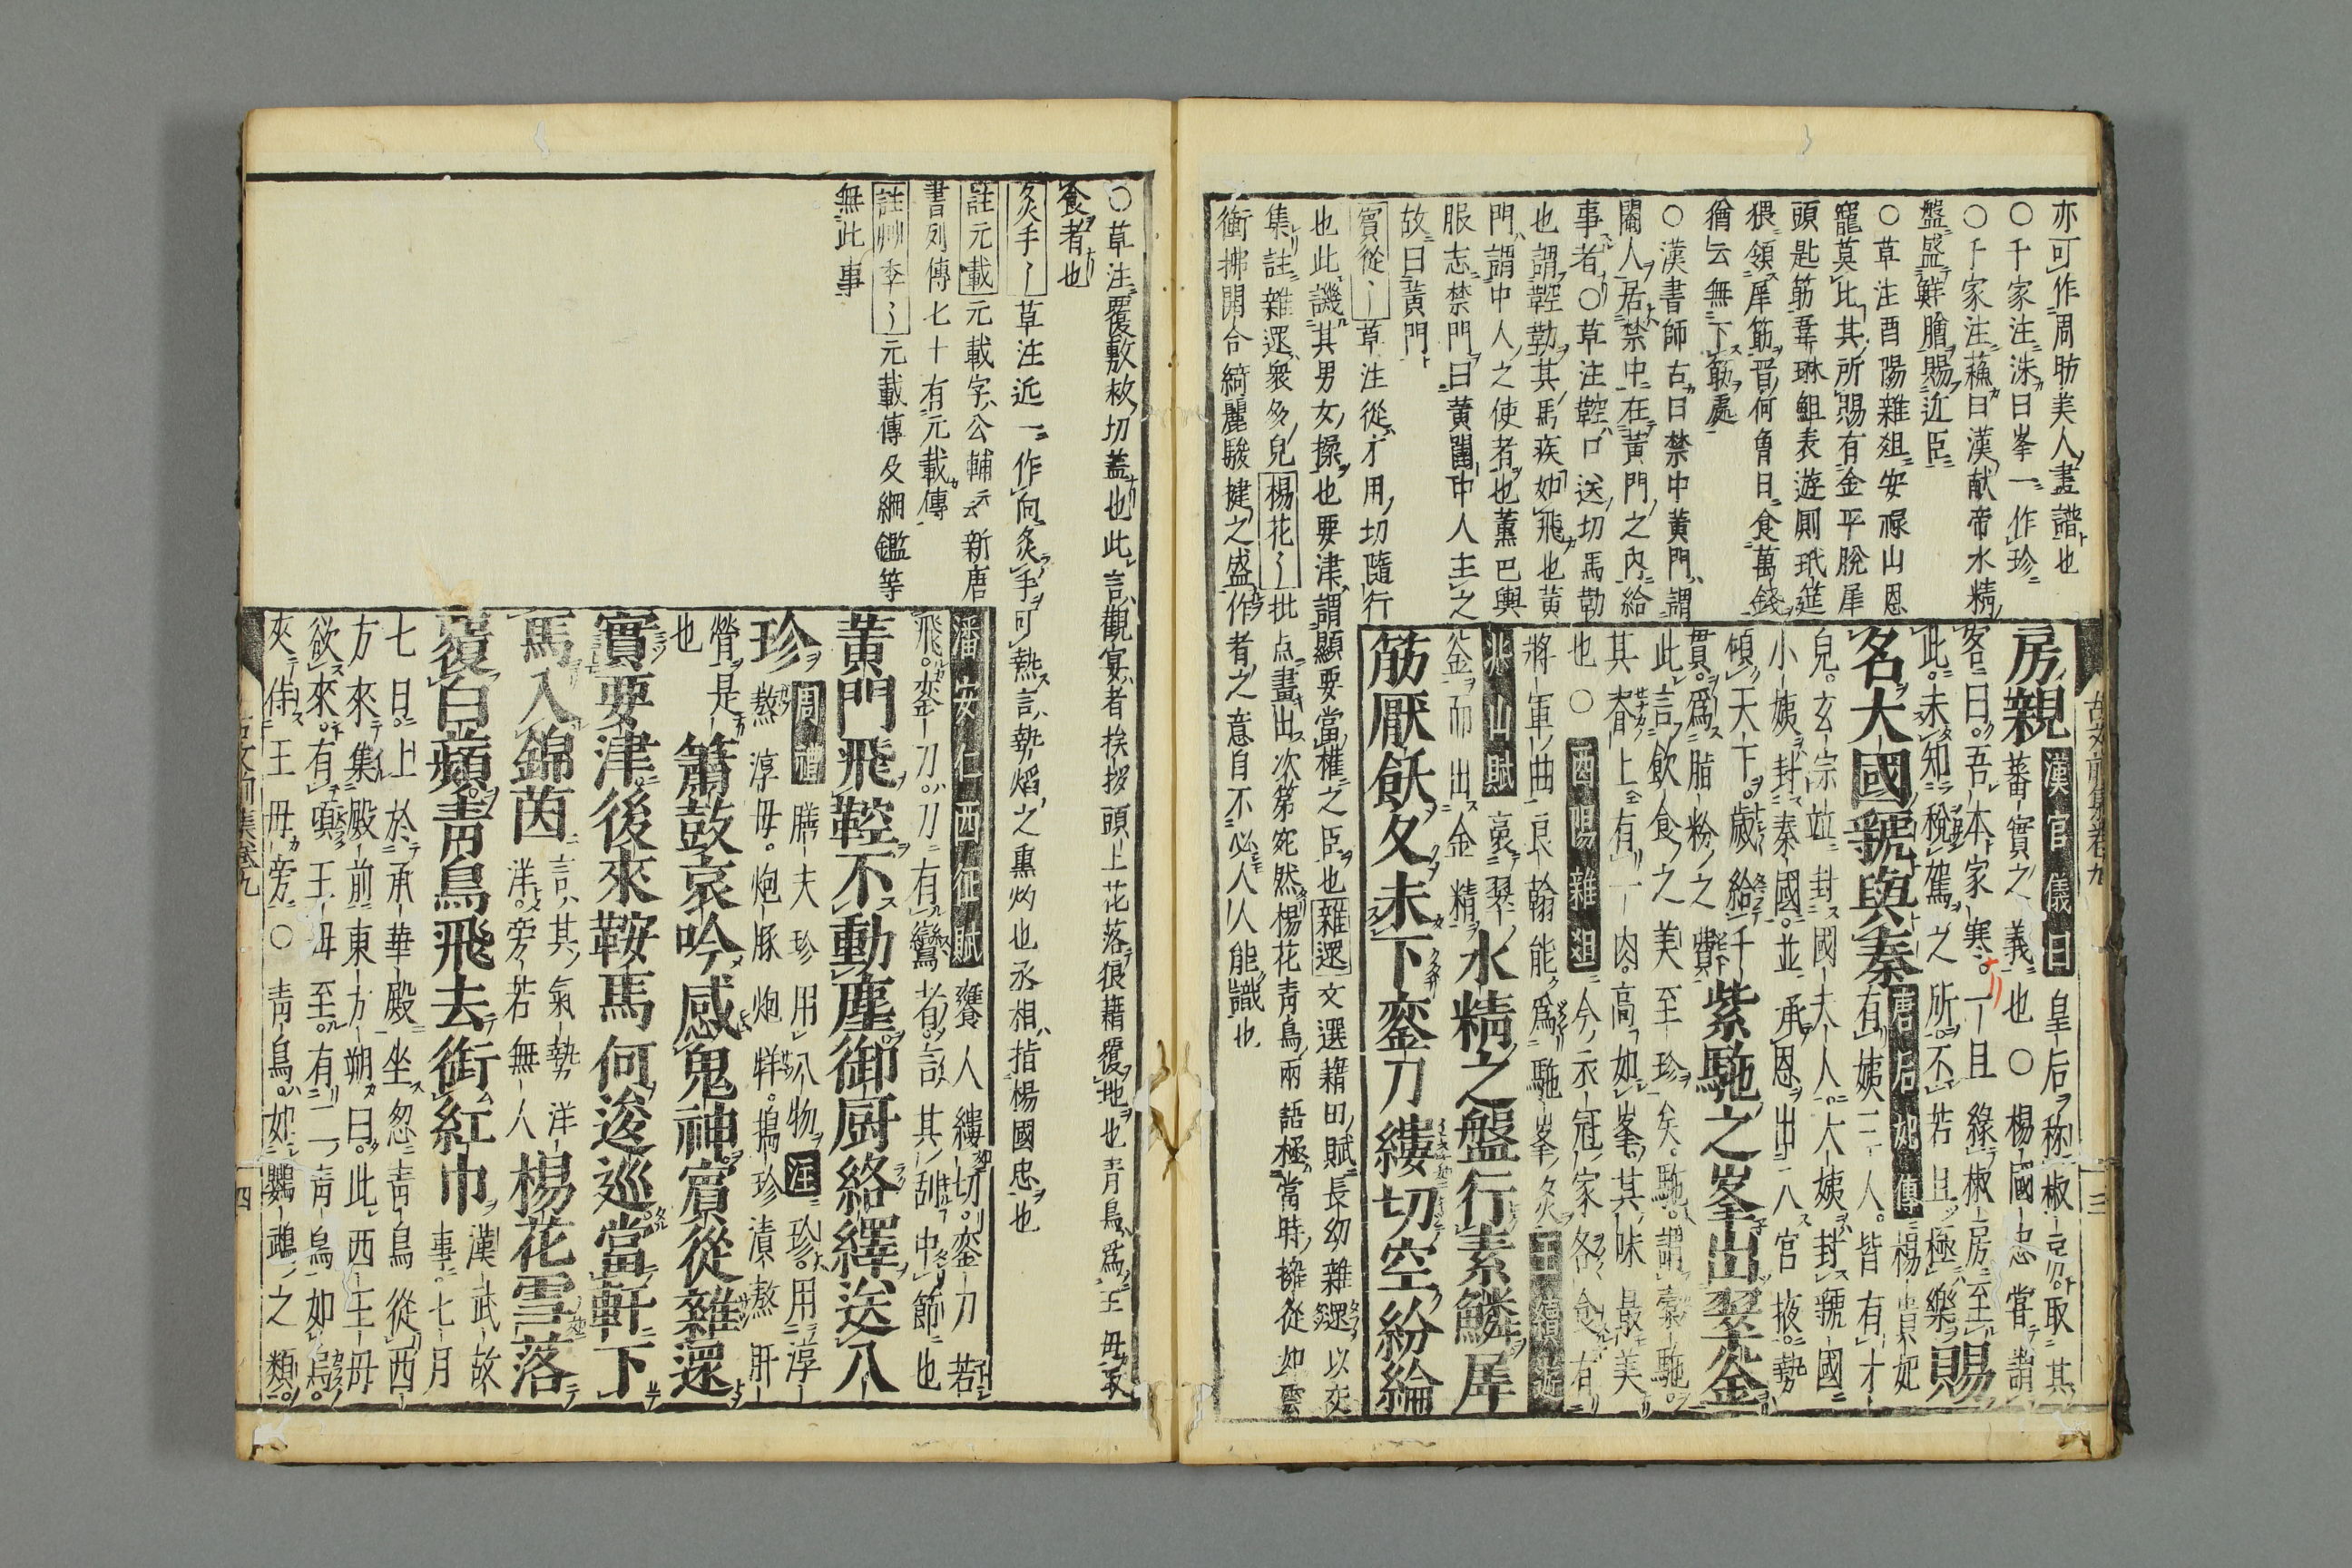 亦可作周肪美人畫譜也
○千家注洙曰峯一作珍
○千家注蘓曰漢献帝水精
盤盛鮮膾賜近臣
○草注酉陽雜俎安禄山恩
寵莫比其所賜有金平脫犀
頭匙筯
猥領犀筯晋何曽日食萬錢
猶云無下筯處
○漢書師古曰禁中黄門謂
閹人居禁中在黄門之内給
事者○草注鞚口送切馬勒
也謂鞚勒其馬疾如飛也黄
門謂中人之使者也薫巴輿
服志禁門曰黄闥中人主之
故曰黄門
賓從〻草注從才用切隨行
也此譏其男女揉也要津謂顯要當權之臣也雜遝文選藉田賦長幼雜遝以交
集註雜遝衆多皃楊花〻批点畫出次第宛然楊花青鳥兩語極當時擁從如雲
衝拂開合綺麗駿揵之盛作者之意自不必人人能識也
房親漢官儀曰皇后稱椒房取其
蕃實之義也○楊國忠嘗謂
客曰吾本家寒一旦緣椒房至
此未知稅駕之所不若且極樂賜
名大國虢與秦唐后妃傳楊貴妃
有姨三人皆有才
皃玄宗並封國夫人大姨封虢國
小姨封秦國並承恩出入官掖勢
傾天下歳給千
貫爲脂粉之費紫駞之峯出翠釜
此言飲食之美至珍矣駞謂槖駞
其脊上有一肉高如峯其味最美
也○酉陽雜俎今衣冠家各食有
將軍曲良翰能爲駞峯炙
氷山賦裛翠
釜而出金精水精之盤行素鱗犀
筯厭飫久未下鑾刀縷切空紛綸
○草注覆敷救切蓋也此言觀宴者挨拶頭上花落狼藉覆地也青鳥爲王母取
食者也
炙手〻草注近一作向炙手可熱言執熖之熏灼也丞相指楊國忠也
註元載元載字公輔云云新唐
書列傳七十有元載傳
註
元載傳及綱鑑等
無此事
潘安仁西征賦饔人縷切鑾刀若
飛鑾刀刀有鸞者言其刮中節也
黄門飛鞚不動塵御厨絡繹送八
珍周禮膳夫珍用八物注珍用淳
熬淳母炮豚炮牂擣珍漬熬肝
膋是
也簫鼓哀吟感鬼神賓從雜遝
實要津後來鞍馬何逡巡當軒下
馬入錦茵言其氣勢洋
洋旁若無人楊花雪落
覆白蘋青鳥飛去銜紅巾漢武故
事七月
七日上於承華殿坐忽青鳥從西
方來集殿前東方朔曰此西王母
欲來有頃王母至有二青鳥如烏
夾侍王母旁○青鳥如鸚鵡之類
古文前集卷九
三
四